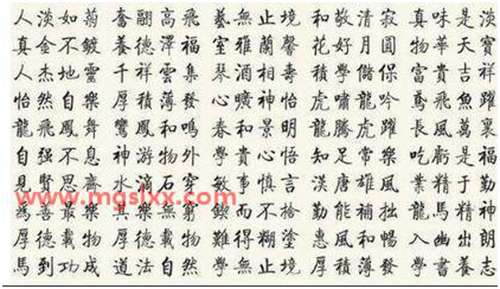 人淡如菊 奮翮高飛 藝無止境 和敬清寂 真味是淡
真金不鍍 養德澤福 室雅蘭馨 花好月圓 物華天寶
人杰地靈 千祥雲集 琴 積學儲 富貴吉祥
怡然自樂 厚積薄發 曠神怡 虎嘯龍吟 鳶飛魚躍
龍飛鳳舞 鸞鳳和鳴 春和景明 龍騰虎躍 長風萬裏
自强不息 神游物外 學貴心悟 知足常樂 吃虧是福
見賢思齊 水滴石穿 敏事慎言 漢唐雄風 業精于勤
www.mgslxx.com
為善最樂 其樂無窮 鍥而不捨 勤能補拙 龍馬精神
厚德載物 德 物 難得糊塗 惠風和暢 入幽出朗
馬到功成 道法自然 學無止境 厚積薄發 學書養志